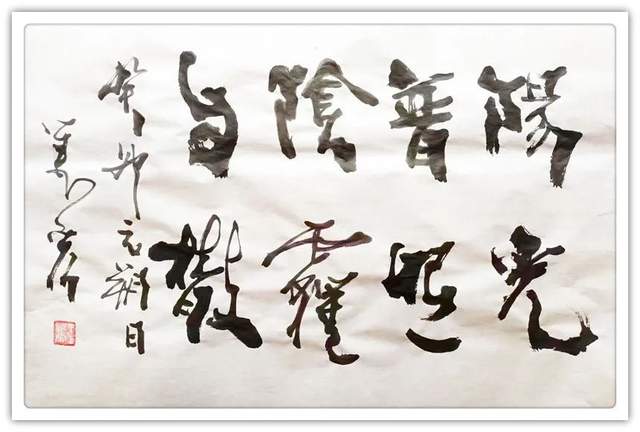 陽光
普照
陰霾
自散
癸卯元朔日